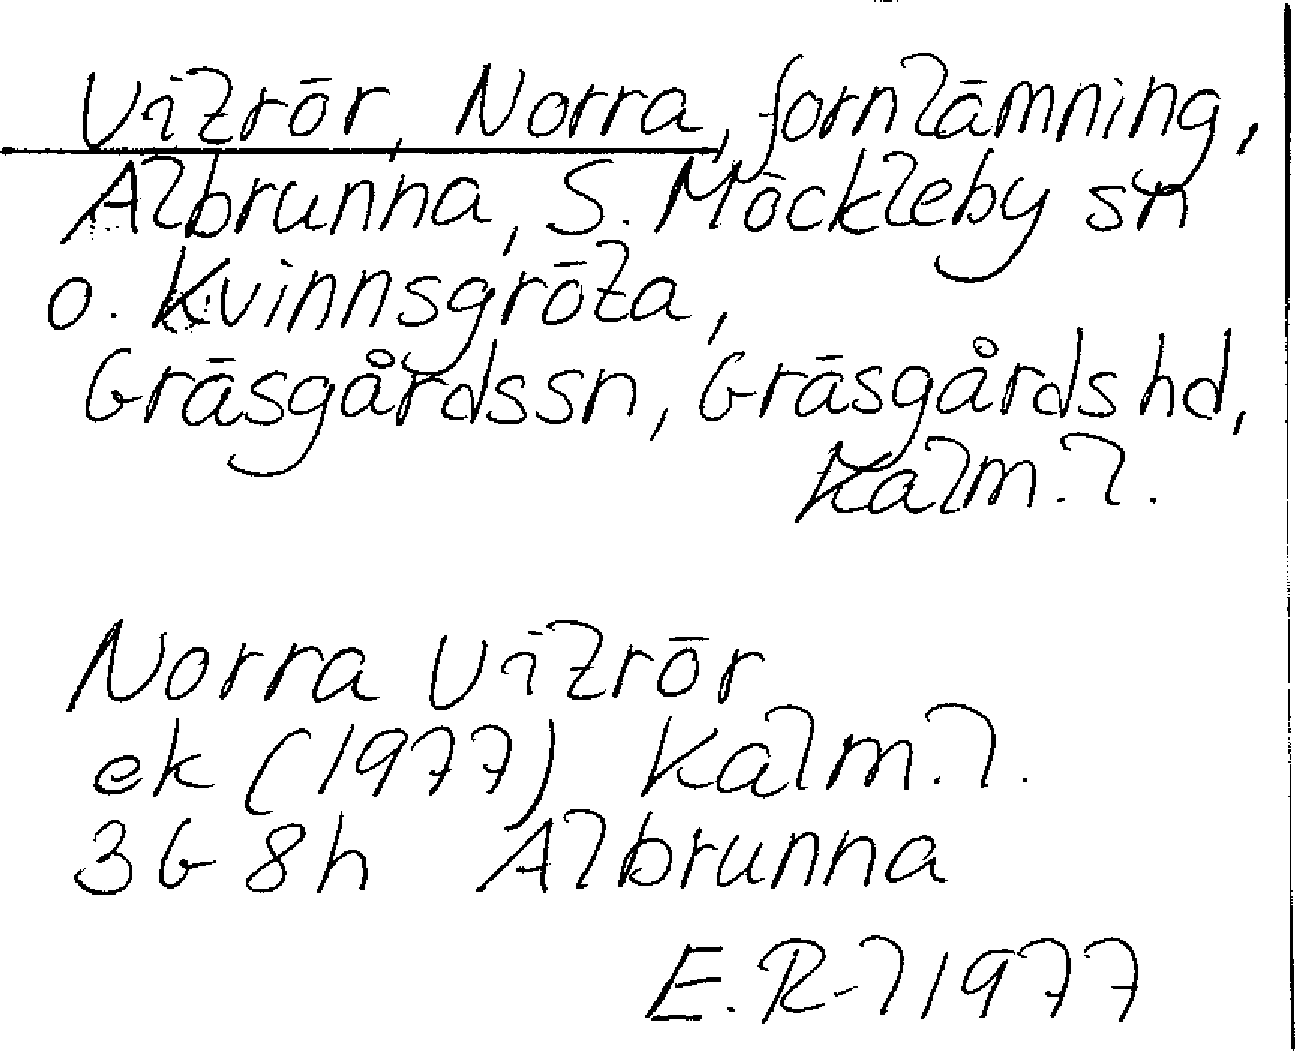 Vitrör, Norra, fornlämning,
Albrunna, S. Möckleby sn
o. Kvinnsgröta,
Gräsgårdssn, Gräsgårds hd,
Kalm. l.
Norra Vitrör
ek (1977) Kalm. l.
3G 8h Albrunna
E. R-l 1977